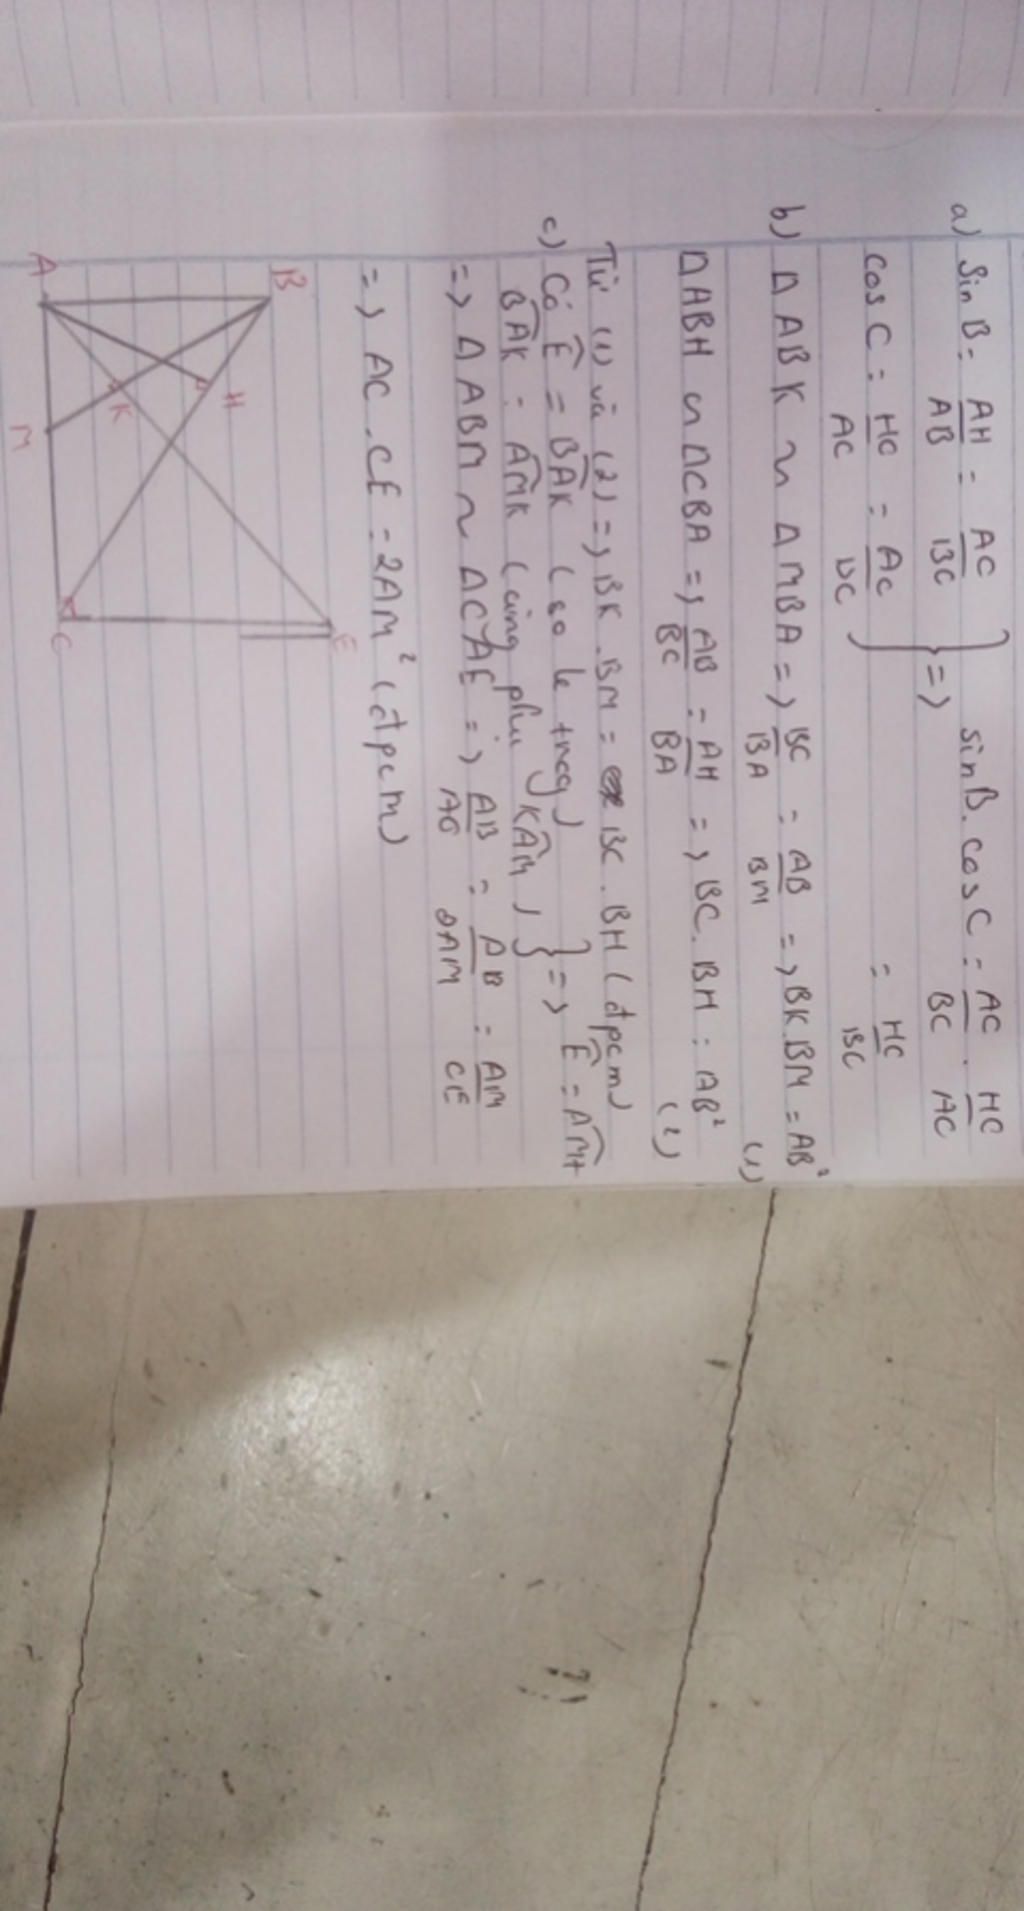 a) Sin B = AH/AB = AC/BC } => sin B. cos C = AC/BC . HC/AC
cos C = HC/AC = AC/DC = HC/BC
b) Δ ABK ~ Δ MBA => BC/BA = AB/BM => BK.BM = AB² (1)
Δ ABH ~ Δ CBA => AB/BC = AH/BA => BC. BH = AB² (2)
Từ (1) và (2) => BK. BM = BC. BH (đpcm)
c) Có Ê = BAK (so le trog) } => Ê = AM
BAK = AMK (cùng phụ KAM)
=> Δ ABM ~ Δ CAE => AB/AC = AB/2AM = AM/CE
=> AC. CE = 2AM² (đpcm)
B
H
E
K
A
M
C